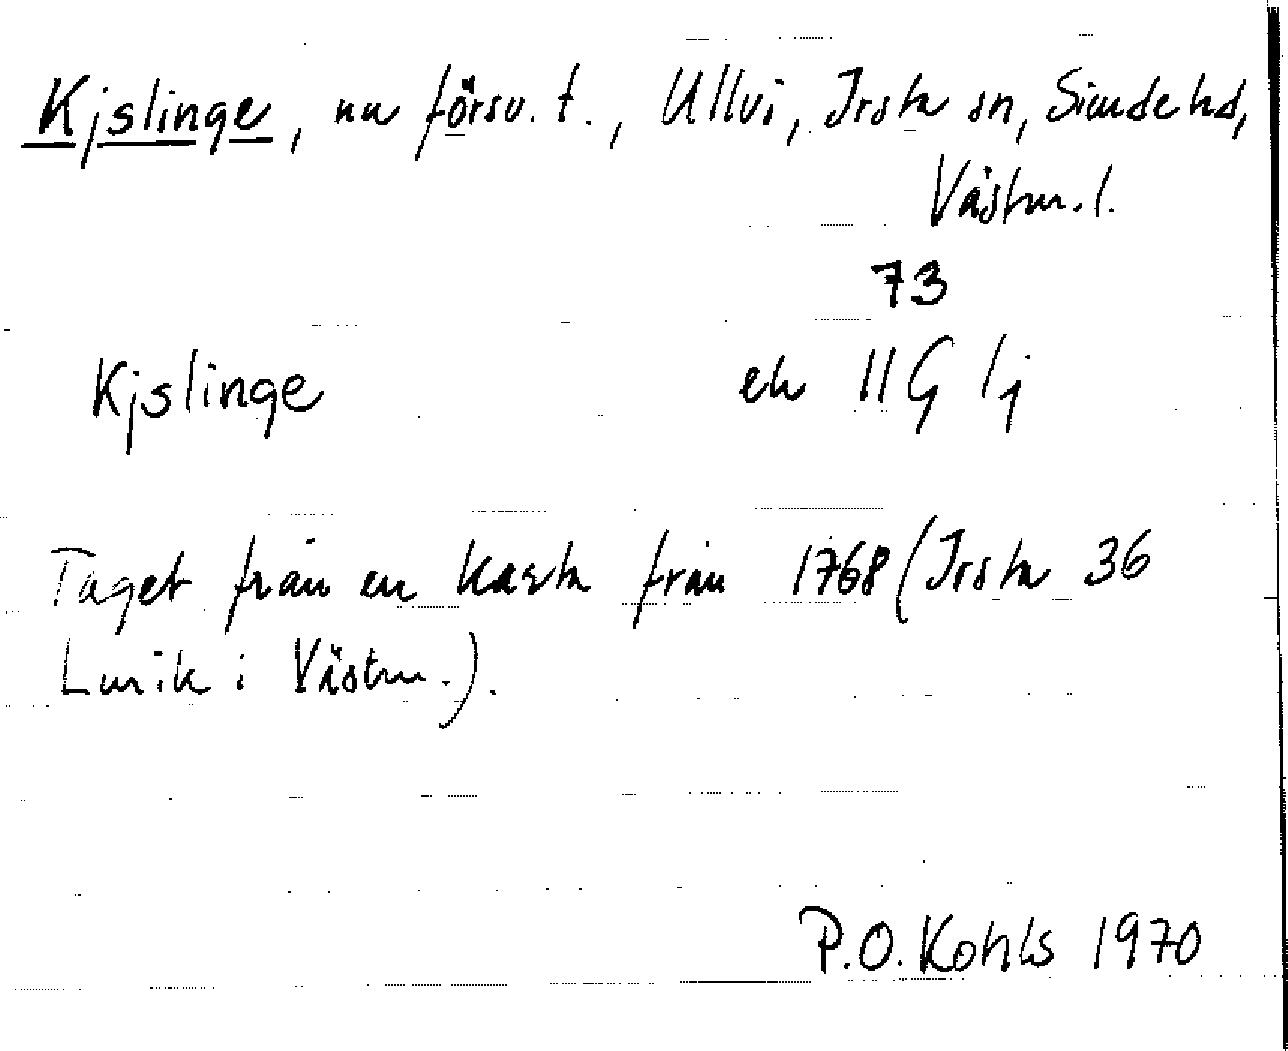 Kjslinge, nu försv. t., Ullvi, Irsta sn, Siende hd,
Västm. l.
73
Kjslinge ek 11G 1j
Taget från en karta från 1768 (Irsta 36
Lmik i Västm.).
P.O. Kohls 1970